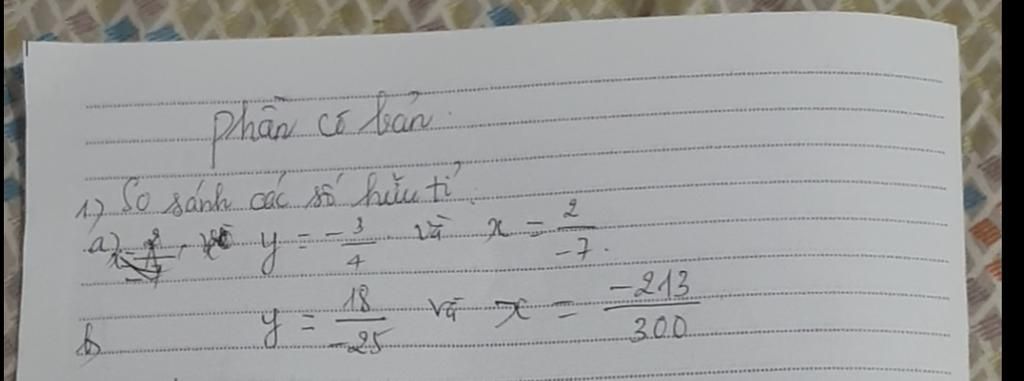 phần cơ bản.
1) So sánh các số hữu tỉ.
a) y = -3/4 và x = 2/-7.
b y = 18/-25 và x = -213/300